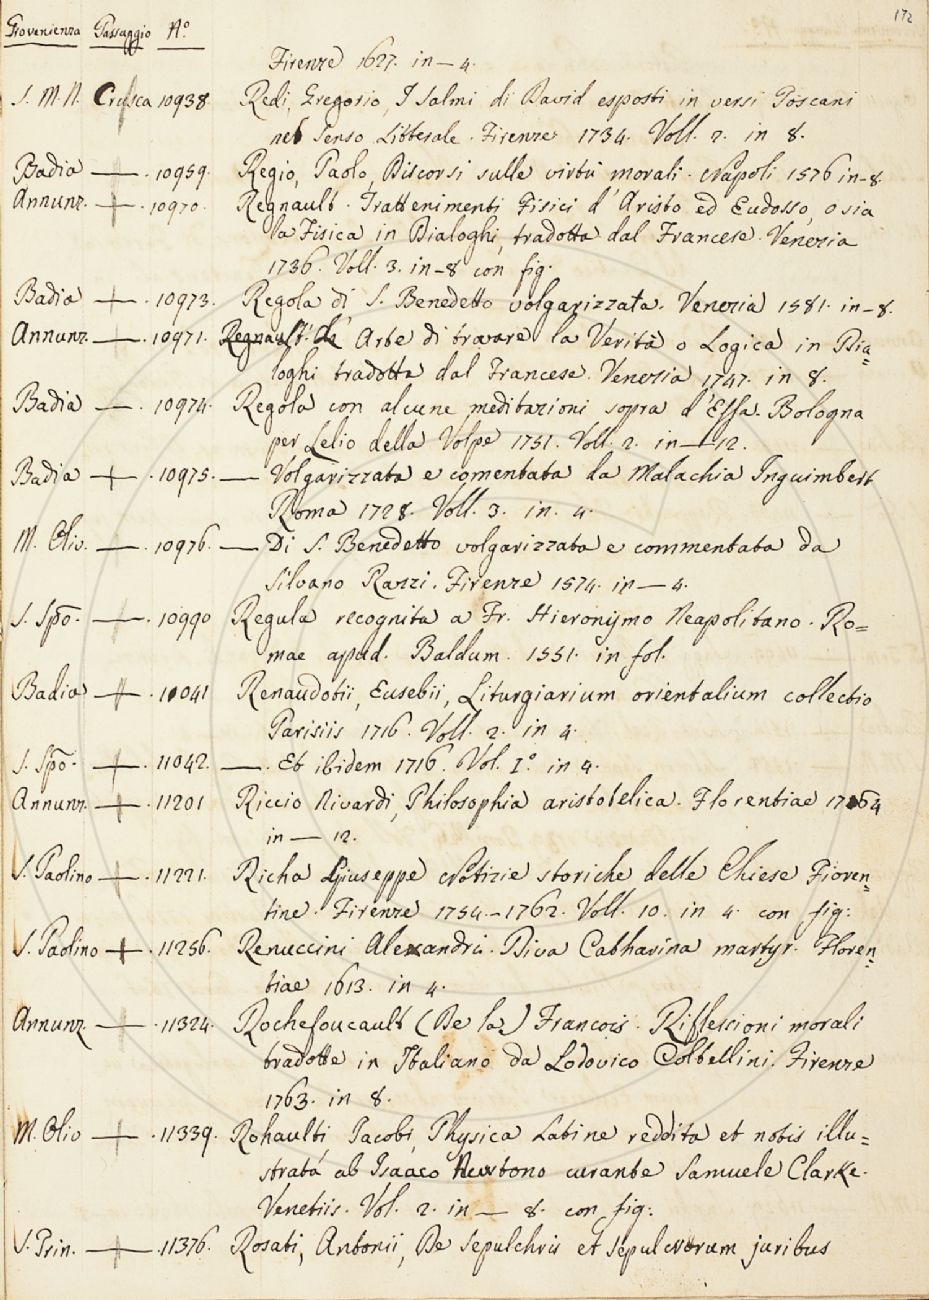 172
Provenienza Passaggio N.º
Firenze 1627. in — 4.
S. M. N. Crusca 10938 Redi, Gregorio, I Salmi di David esposti in versi Toscani
nel senso Litterale. Firenze 1734. Voll. 2. in 8.
Badia — 10959. Regio, Paolo, Discorsi sulle virtù morali. Napoli 1576 in-8.
Annunz. — 10970. Regnault. Trattenimenti Fisici d'Aristo ed Eudosso, o sia
la Fisica in Dialoghi, tradotta dal Francese. Venezia
1736. Voll. 3. in-8 con fig.
Badia — 10973. Regola di S. Benedetto volgarizzata. Venezia 1581. in-8.
Annunz. — 10971. Regnault. Arte di trovare la Verità o Logica in Dia=
loghi tradotta dal Francese. Venezia 1747. in 8.
Badia — 10974. Regola con alcune meditazioni sopra d'Essa. Bologna
per Lelio della Volpe 1751. Voll. 2. in — 12.
Badia — 10975. — Volgarizzata e comentata da Malachia Inguimbert
Roma 1728. Voll. 3. in. 4.
M. Oliv. — 10976. — Di S. Benedetto volgarizzata e commentata da
Silvano Razzi. Firenze 1574. in — 4.
S. Spõ. — 10990 Regula recognita a Fr. Hieronymo Neapolitano. Ro=
mae apud. Baldum. 1551. in fol.
Badia — 11041 Renaudotii, Eusebii, Liturgiarium orientalium collectio
Parisiis 1716. Voll. 2. in 4.
S. Spõ. — 11042. — . Et ibidem 1716. Vol. I.º in 4.
Annunz. — 11201 Riccio Nivardi, Philosophia aristotelica. Florentiae 1764
in — 12.
S. Paolino — 11221. Richa Giuseppe Notizie storiche delle Chiese Fioren=
tine. Firenze 1754.-1762. Voll. 10. in 4. con fig:
S. Paolino — 11256. Renuccini Alexandri. Diva Catharina martyr. Floren=
tiae 1613. in 4.
Annunz. — 11324. Rochefoucault (De la) Francois. Riflessioni morali
tradotte in Italiano da Lodovico Coltellini. Firenze
1763. in 8.
M. Oliv — 11339. Rohaulti Jacobi Physica Latine reddita et notis illu=
strata ab Isaaco Newtono curante Samuele Clarke.
Venetiis. Vol. 2. in — 8. con fig:
S. Prin. — 11376. Rosati, Antonii, De sepulchris et sepulcrorum juribus